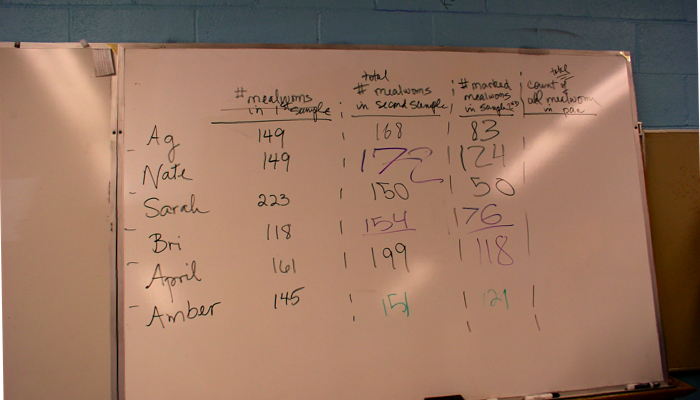 # mealworms in 1st sample
total # mealworms in second sample
# marked mealworms in sample 2nd
total count of all mealworms in pan
Ag 149 168 83
Nate 149 172 124
Sarah 223 150 50
Bri 118 154 76
April 161 199 118
Amber 145 151 121